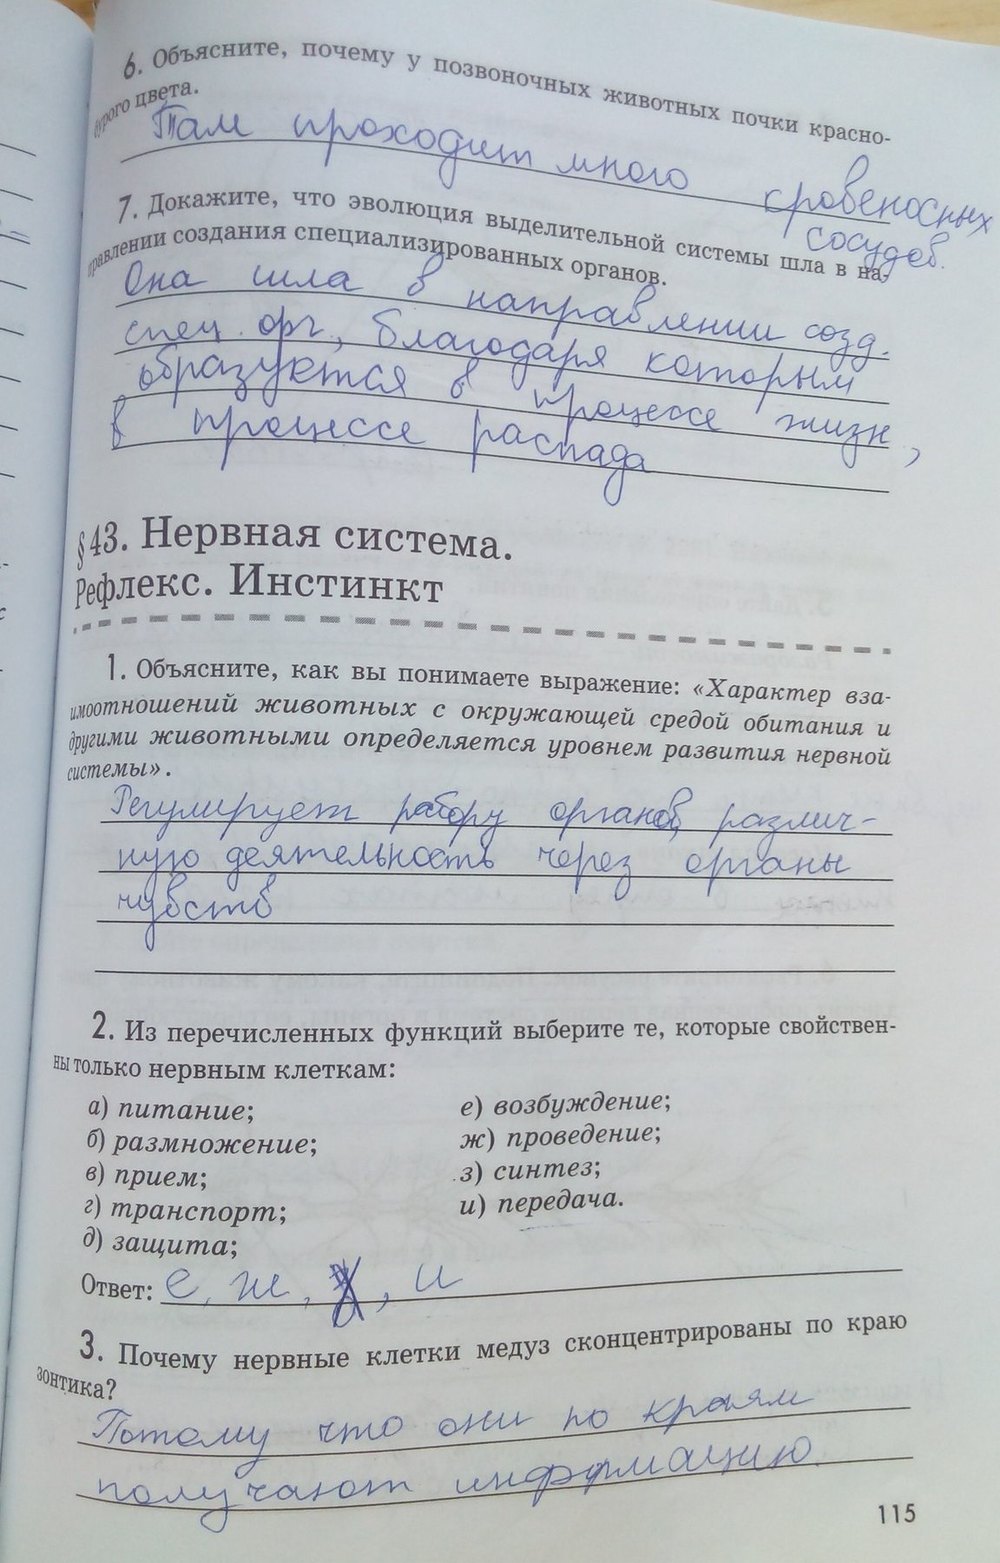 6. Объясните, почему у позвоночных животных почки красно-
бурого цвета.
Там проходит много кровеносных
сосудов.
7. Докажите, что эволюция выделительной системы шла в на-
правлении создания специализированных органов.
Она шла в направлении созд.
спец. орг, благодаря которым
образуются в процессе жизн,
в процессе распада
§ 43. Нервная система.
Рефлекс. Инстинкт
1. Объясните, как вы понимаете выражение: «Характер вза-
имоотношений животных с окружающей средой обитания и
другими животными определяется уровнем развития нервной
системы».
Регулирует работу органов, различ-
ную деятельность через органы
чувств
2. Из перечисленных функций выберите те, которые свойствен-
ны только нервным клеткам:
а) питание;
б) размножение;
в) прием;
г) транспорт;
д) защита;
е) возбуждение;
ж) проведение;
з) синтез;
и) передача.
Ответ: е, ж, , и
3. Почему нервные клетки медуз сконцентрированы по краю
зонтика?
Потому что они по краям
получают информацию.
115